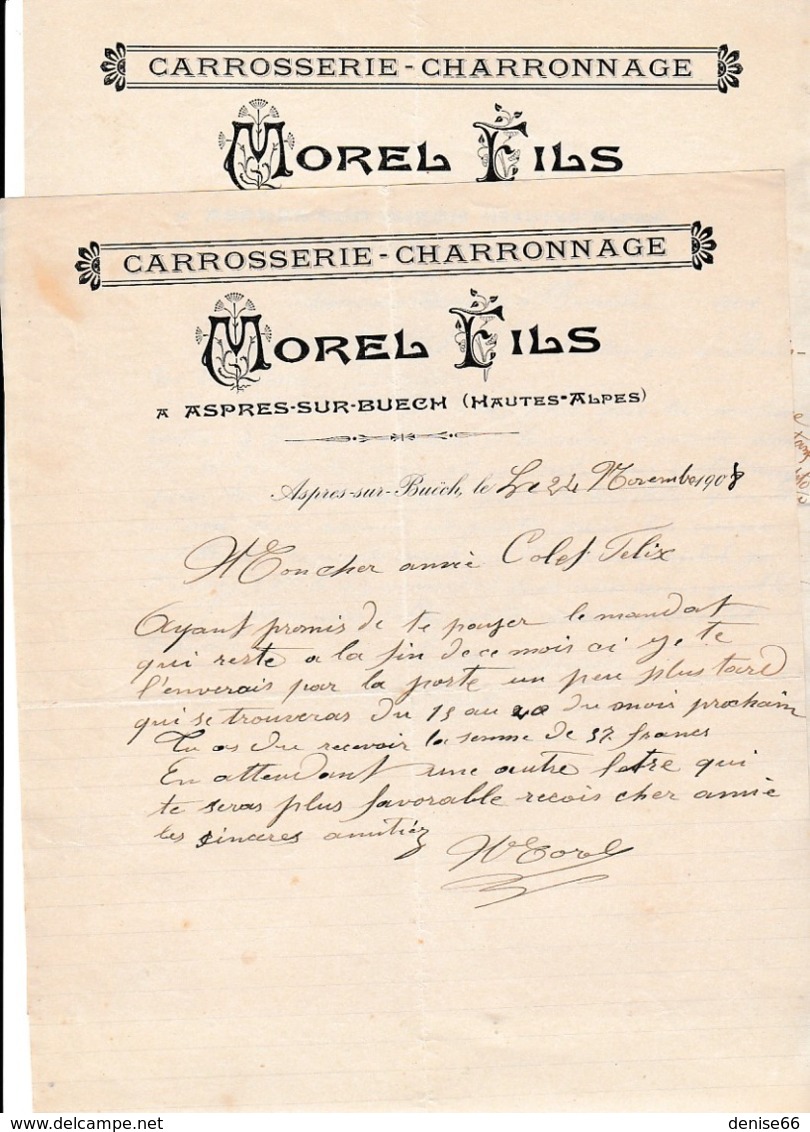 CARROSSERIE - CHARRONNAGE
MOREL FILS
CARROSSERIE - CHARRONNAGE
MOREL FILS
A ASPRES-SUR-BUECH (HAUTES-ALPES)
Aspres-sur-Buëch, le Le 24 Novembre 1908
Mon cher amie Colet Felix
Ayant promis de te payer le mandat
qui reste a la fin de ce mois ci je te
l'enverais par la poste un peu plus tard
qui se trouveras du 15 au 20 du mois prochain
Tu as du recevoir la somme de 37 francs
En attendant une autre letre qui
te seras plus favorable recois cher amie
les sinceres amitiéz
Morel
denise66